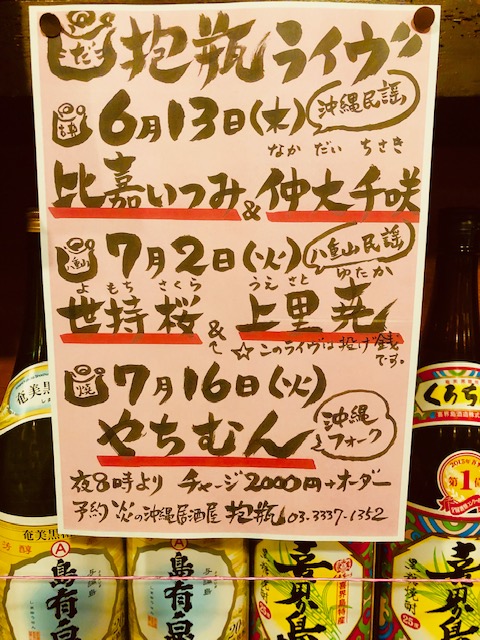 だちびん
抱瓶ライヴ
6月13日(木)
沖縄民謡
なかだい ちさき
比嘉いつみ&仲大千咲
八重山
7月2日(火)
八重山民謡
よもち さくら うえさと ゆたか
世持桜&上里尭
☆このライヴは投げ銭です。
焼
7月16日(火)
沖縄フォーク
やちむん
夜8時より チャージ2000円+オーダー
予約 炎の沖縄居酒屋 抱瓶 03-3337-1352
奄美黒
A
島有泉
A
島有泉
喜界島
黒糖焼酎
25度
くろち
喜界島酒造株式
2015年
第1
喜界島
黒糖焼酎
25度